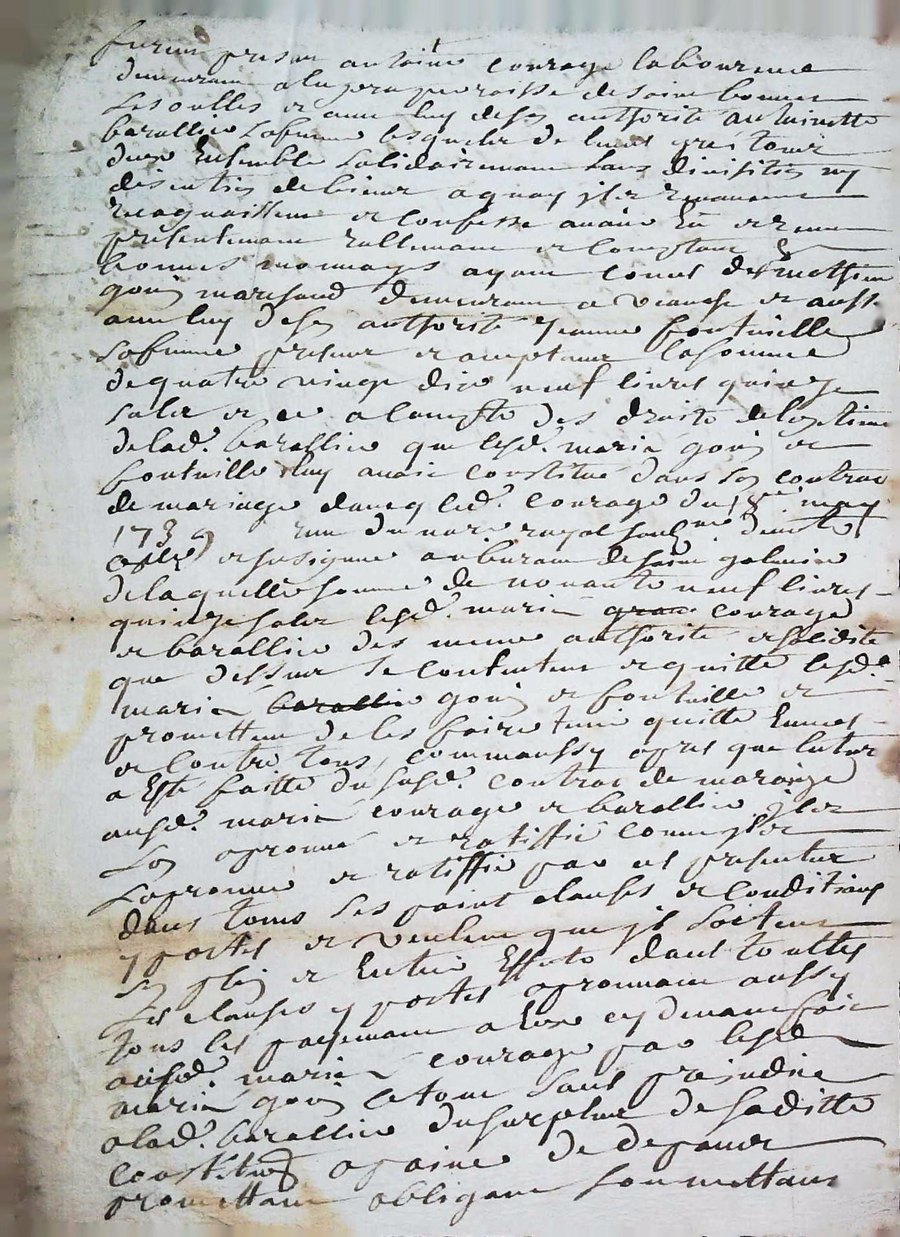 furent presant antoine courage laboureur
demeurant a la paroisse de saint bonnet
Les oulles et avec luy de son authorité antoinette
barallieu sa femme lesquels de leurs grés tous
deux Ensemble solidairement sans division ny
discution de biens a quoy ils Renoncent
Recognoissent et confesse avoir Eu et receu
presentement reallement et comptant En
bonnes monnoyes ayant cours de mathieu
gouy marchand demeurant a veauche et aussi
avec luy de son authorité jeanne fontvielle
sa femme presant et acceptant la somme
de quatre vingt dix neuf livres quinze
solz et ce a compte des droits de
de lad. barallieu que lesd. mariés gouy et
fontvielle luy avoit constitué dans son contrac
de mariage avecq led. courage du 18e may
1739 Receu du notaire royal soubne
et susigné au bureau de saint galmier
de laquelle somme de nonante neuf livres
quinze solz lesd. mariés courage
et barallieu des mesme authorité et solidité
que dessus se contentent et quitte lesd.
mariés barallieu gouy et fontvielle et
promettent de les faire tenir quitte Envers
et contre tous, comm'aussy apres que lecture
a Esté faitte du susd. contrac de mariage
ausd. mariés courage et barallieu ils
L'on aprouvé et ratiffié comme ils
L'aprouve et ratiffie par ces presentes
dans tous ses point clauses et conditions
y portés et veulent qu'il sortent
son plein et Entier Effets dans touttes
Les clauses y portés aprouvant aussy
tous les payement a Eux cy devant fait
ausd. mariés courage par lesd.
mariés gouy le tout sans prejudice
a lad. barallieu du surplus de saditte
constitution a paine de depans
promettant obligant soumettant